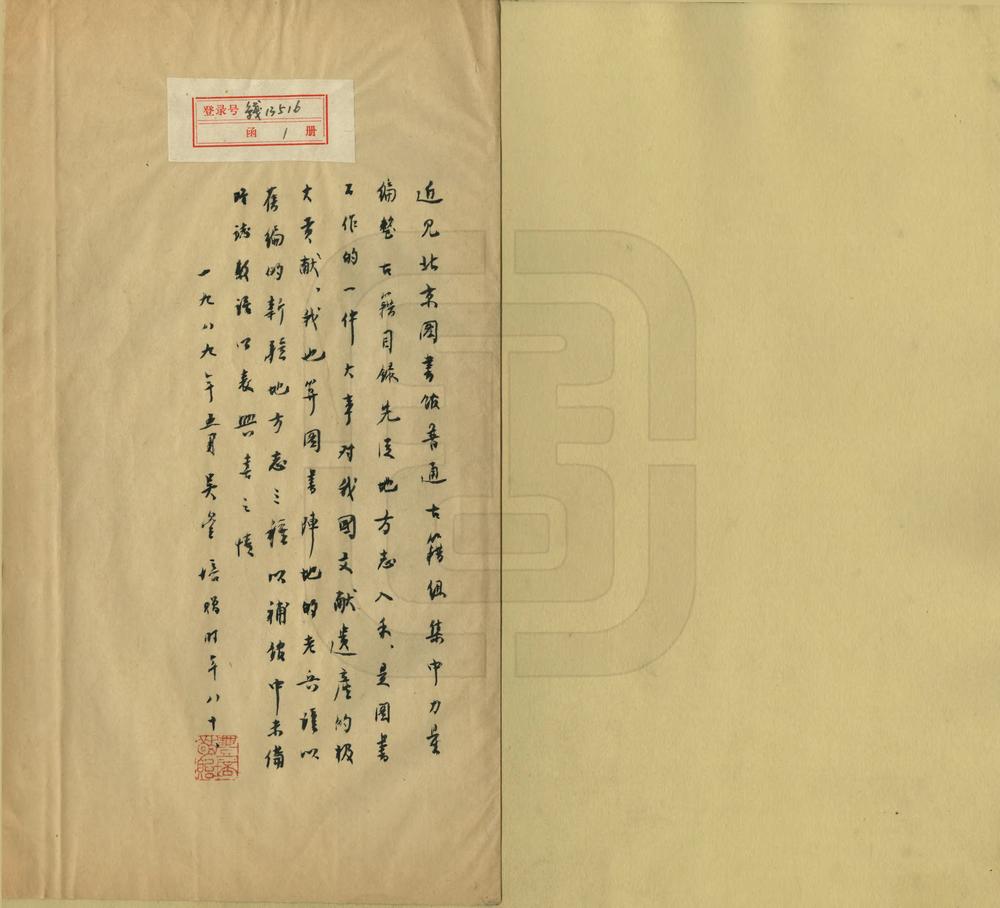 登录号 錢13516
函 1 册
近见北京图書馆普通古籍组集中力量
编整古籍目録先从地方志入手、是图書
工作的一件大事对我國文献遗產的极
大贡献、我也算图書陣地的老兵谨以
舊编的新疆地方志三種以補馆中未備
時誌数语以表兴喜之情
一九八九年五月吴豐培赠时年八十、